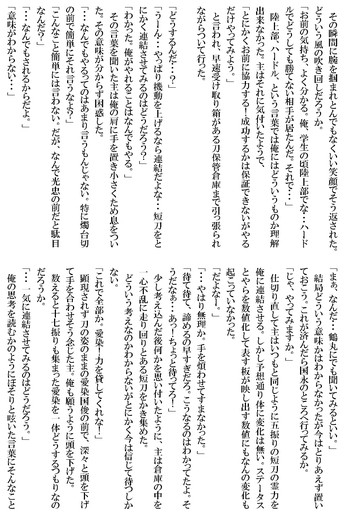 その瞬間に腕を掴まれとんでもなくいい笑顔でそう返された。
どういう風の吹き回しだろうか。
「お前の気持ち、よく分かる。俺、学生の頃陸上部でな・・ハード
ルでどうしても勝てない相手が居たんだ。それで・・」
陸上部、ハードル、という言葉では俺にはどういうものか理解
出来なかった。主はそれに気付いたようで、
「とにかくお前に協力する！成功するかは保証できないがやる
だけやってみよう。」
と言われ、早速受け取り箱がある刀保管倉庫まで引っ張られ
ながらついて行った。
「どうするんだ・・？」
「うーん・・やっぱり機動を上げるなら連結だよな・・短刀をと
にかく連結させてみるのはどうだろう？」
「わかった。俺がやれることはなんでもやる。」
その言葉を聞いた主は俺の肩に手を置き小さくため息をつい
た。その意味が分からず困惑した。
「・・なんでもやるってのはあまり言うもんじゃない。特に燭台切
の前で簡単にそれ言うなよ？」
「こんなこと簡単には言わない。だが、なんで光忠の前だと駄目
なんだ？」
「・・なんでもされるからだよ。」
「意味がわからない・・」
「まぁ、なんだ・・鶴丸にでも聞いてみるといい。」
結局どういう意味かはわからなかったが今はとりあえず置い
ておこう。これが済んだら国永のところへ行ってみるか。
「じゃ、やってみますか。」
仕切り直して主はいつもと同じように五振りの短刀の霊力を
俺に連結する。しかし予想通り体に変化は無い。ステータス
とやらを数値化して表す板が映し出す数値にもなんの変化も
起こっていなかった。
「だよなー。」
「・・やはり無理か。手を煩わせてすまなかった。」
「待て待て、諦めるの早すぎだろ。こうなるのはわかってたよ。そ
うだなぁ・・あっ！ちょっと待ってろー！」
少し考え込んだ後何かを思い付いたように、主は倉庫の中を
一心不乱に走り回りとある短刀をかき集めた。
どういう考えなのかわからないがとにかく今は信じて待つしか
ない。
「これで全部か。愛染！力を貸してくれなー！」
顕現されず刀の姿のままの愛染達の前で、深々と頭を下げ
て手を合わせそう念じた主。俺も願うように頭を下げた。
数えると十七振りも集まった愛染を一体どうするつもりなの
だろうか。
「・・一気に連結させてみるのはどうだろう。」
俺の思考を読むかのようにぼそりと呟いた言葉にそんなこと